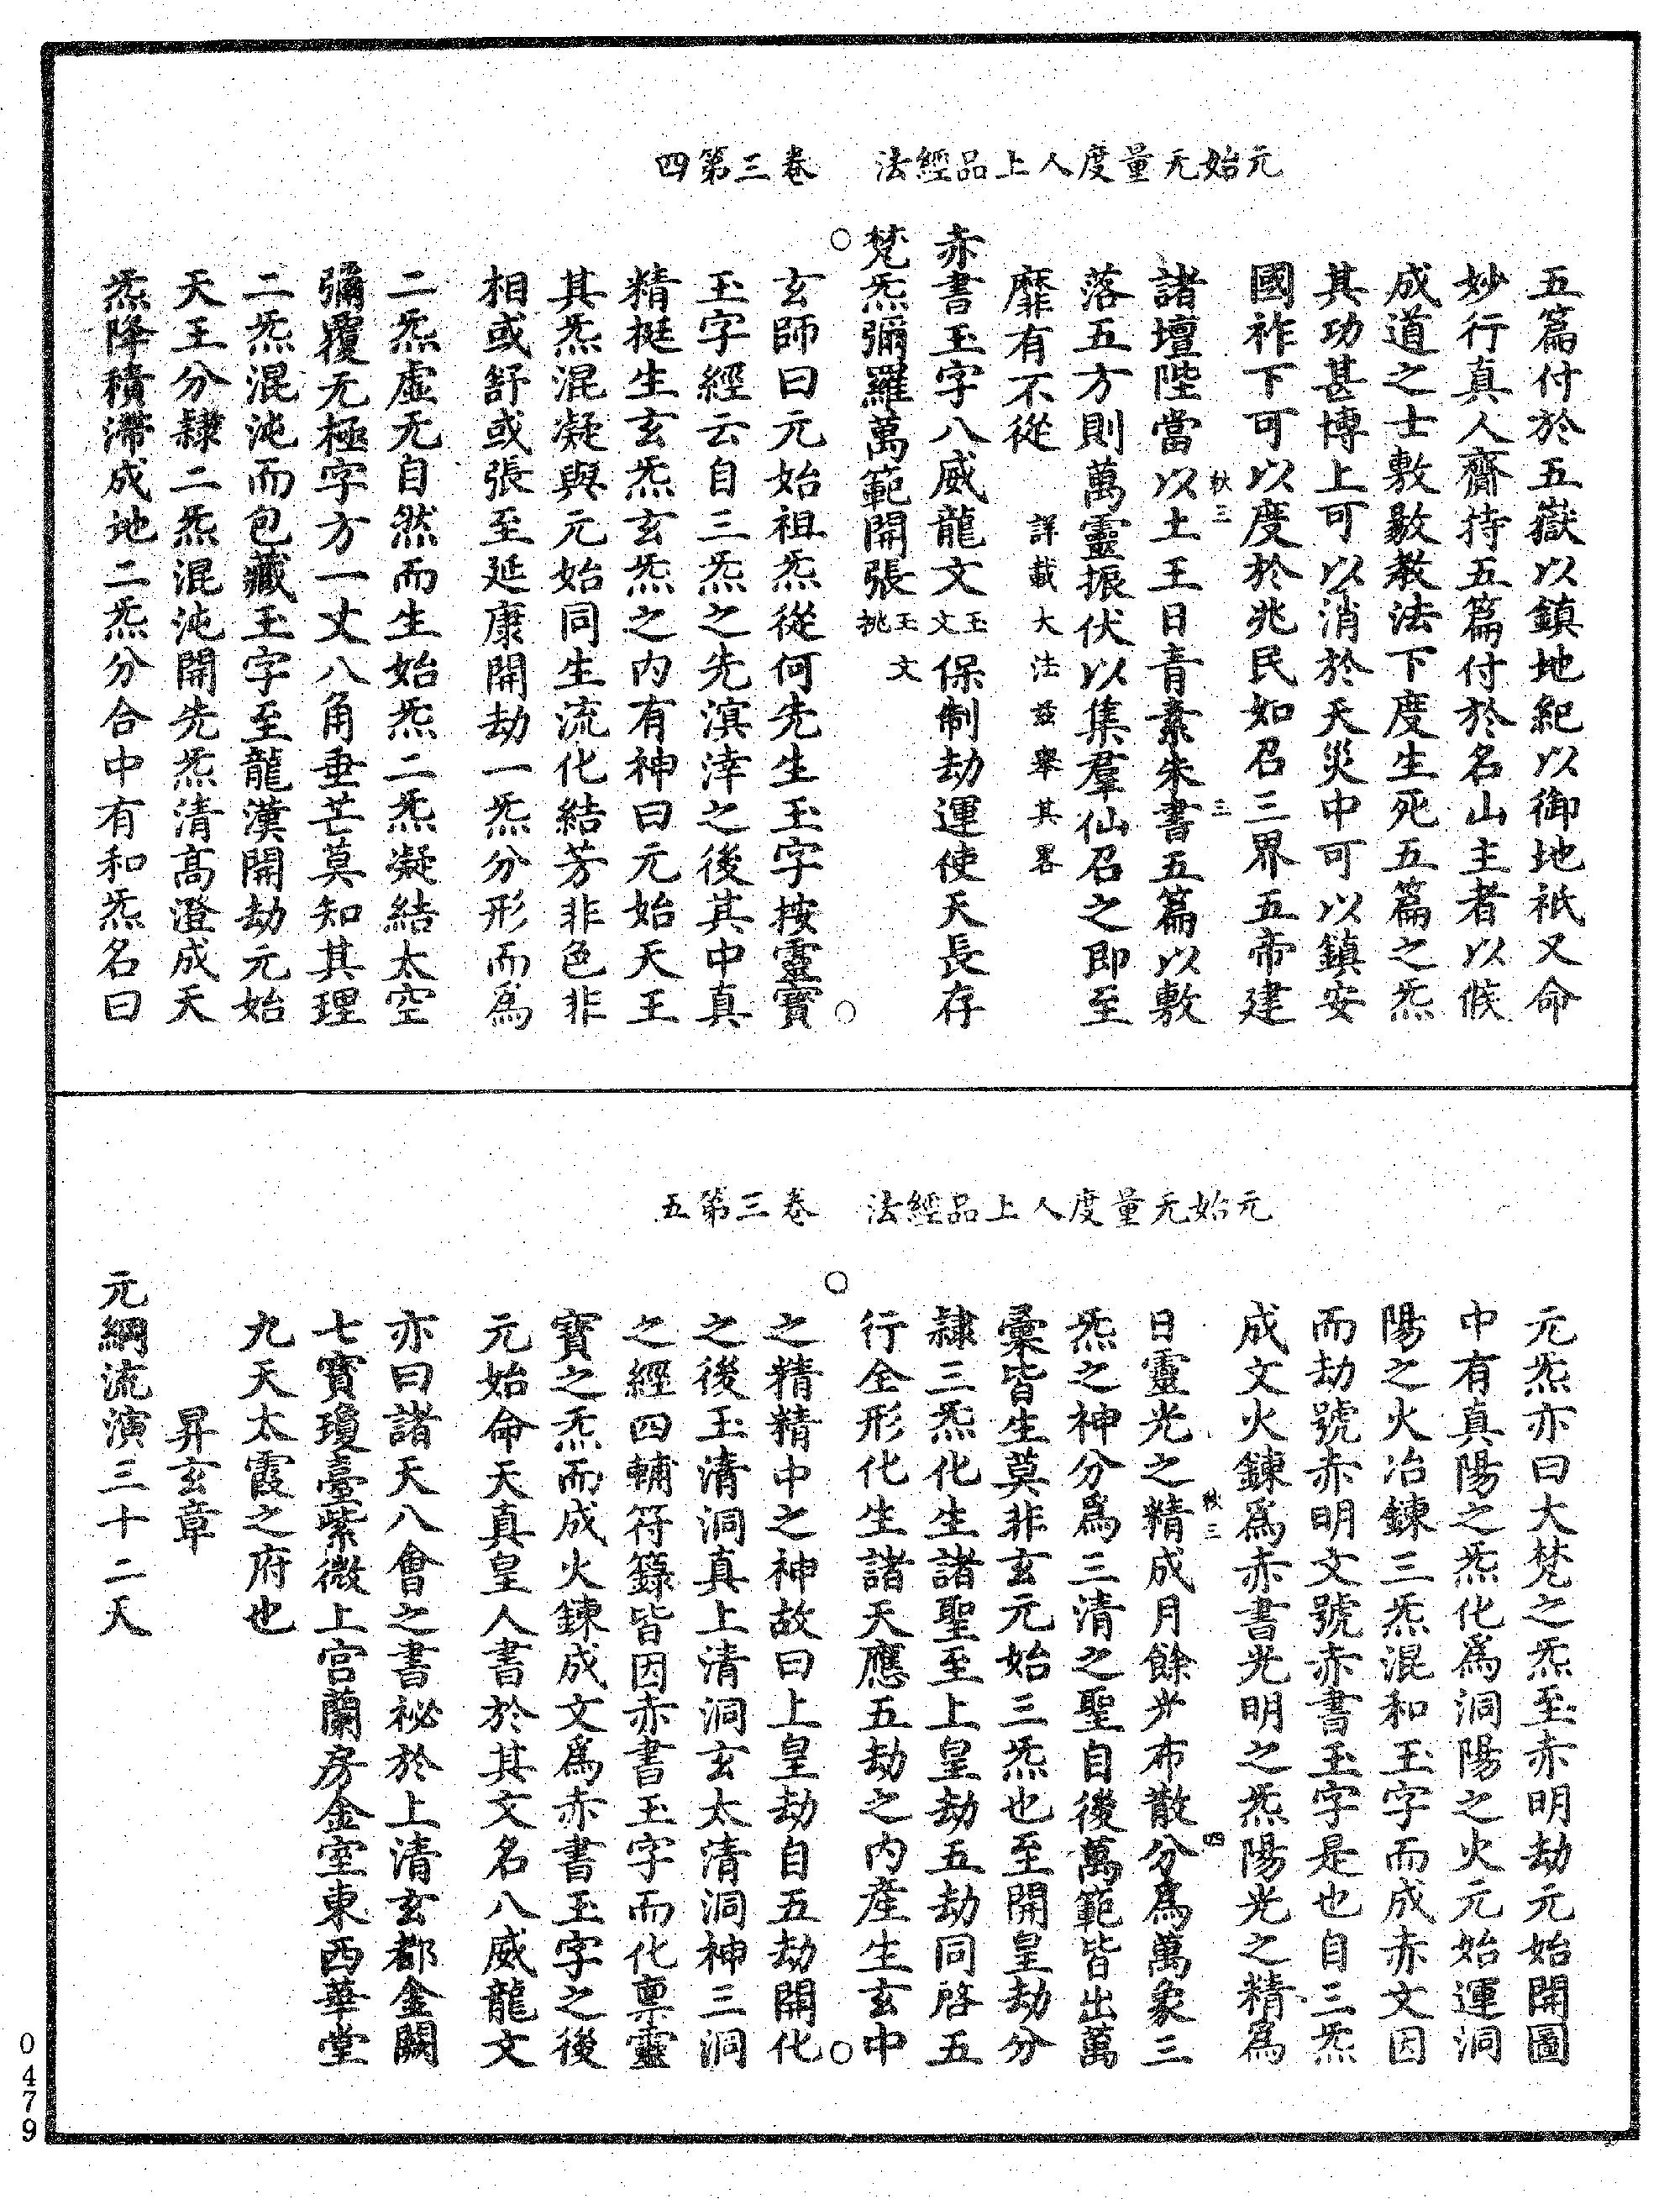 元始无量度人上品經法　卷三第四
五篇付於五嶽以鎮地紀以御地祇又命
妙行真人齎持五篇付於名山主者以候
成道之士敷歎教法下度生死五篇之炁
其功甚博上可以消於天災中可以鎮安
國祚下可以度於兆民如召三界五帝建
秋三　三
諸壇陛當以土王日青素朱書五篇以敷
落五方則萬靈振伏以集羣仙召之即至
靡有不從詳載大法茲舉其畧
赤書玉字八威龍文玉文保制劫運使天長存
梵炁彌羅萬範開張玉文桃
玄師曰元始祖炁從何先生玉字按靈寶
玉字經云自三炁之先溟涬之後其中真
精挺生玄炁玄炁之内有神曰元始天王
其炁混凝與元始同生流化結芳非色非
相或舒或張至延康開劫一炁分形而爲
二炁虛无自然而生始炁二炁凝結太空
彌覆无極字方一丈八角垂芒莫知其理
二炁混沌而包藏玉字至龍漢開劫元始
天王分隸二炁混沌開先炁清高澄成天
炁降積滯成地二炁分合中有和炁名曰
元始无量度人上品經法　卷三第五
元炁亦曰大梵之炁至赤明劫元始開圖
中有真陽之炁化爲洞陽之火元始運洞
陽之火冶鍊三炁混和玉字而成赤文因
而劫號赤明文號赤書玉字是也自三炁
成文火鍊爲赤書光明之炁陽光之精爲
秋三　四
日靈光之精成月餘光布散分爲萬象三
炁之神分爲三清之聖自後萬範皆出萬
彙皆生莫非玄元始三炁也至開皇劫分
隸三炁化生諸聖至上皇劫五劫同啓五
行全形化生諸天應五劫之内産生玄中
之精精中之神故曰上皇劫自五劫開化
之後玉清洞真上清洞玄太清洞神三洞
之經四輔符籙皆因赤書玉字而化禀靈
寶之炁而成火鍊成文爲赤書玉字之後
元始命天真皇人書於其文名八威龍文
亦曰諸天八會之書祕於上清玄都金闕
七寳瓊臺紫微上宫蘭房金室東西華堂
九天太霞之府也
昇玄章
元綱流演三十二天
0479